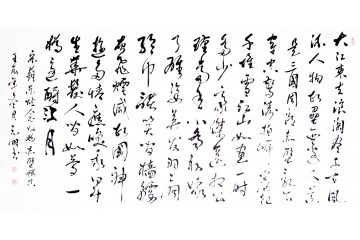 大江東去浪淘盡千古風
流人物故壘西邊人道
是三國周郎赤壁亂石
穿空驚濤拍岸捲起
千堆雪江山如畫一時
多少豪傑遙想公
瑾當年小喬初嫁
了雄姿英發羽扇
綸巾談笑間檣艣
灰飛煙滅故國神
遊多情應笑我早
生華髮人間如夢一
樽還酹江月
宋蘇東坡念奴嬌赤壁懷古
壬辰年冬月